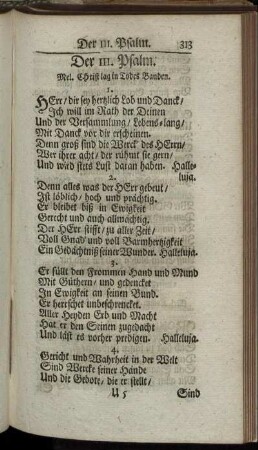 Der 111. Psalm. 313
Der 111. Psalm.
Mel. Christ lag in Todes Banden.
1.
HErr/ dir sey hertzlich Lob und Danck/
Ich will im Rath der Deinen
Und der Versammlung/ Lebens-lang/
Mit Danck vor dir erscheinen.
Denn groß sind die Werck des HErrn/
Wer ihrer acht/ der rühmt sie gern/
Und wird stets Lust daran haben. Halle-
2. luja.
Denn alles was der HErr gebeut/
Ist löblich/ hoch und prächtig.
Er bleibet biß in Ewigkeit
Gerecht und auch allmächtig.
Der HErr stifft/ zu aller Zeit/
Voll Gnad/ und voll Barmhertzigkeit
Ein Gedächtniß seiner Wunder. Halleluja.
3.
Er füllt den Frommen Hand und Mund
Mit Güthern/ und gedencket
In Ewigkeit an seinen Bund.
Er herrschet unbeschrencket.
Aller Heyden Erb und Macht
Hat er den Seinen zugedacht
Und läst es vorher predigen. Halleluja.
4.
Gericht und Wahrheit in der Welt
Sind Wercke seiner Hände
Und die Gebote/ die er stellt/
U 5 Sind